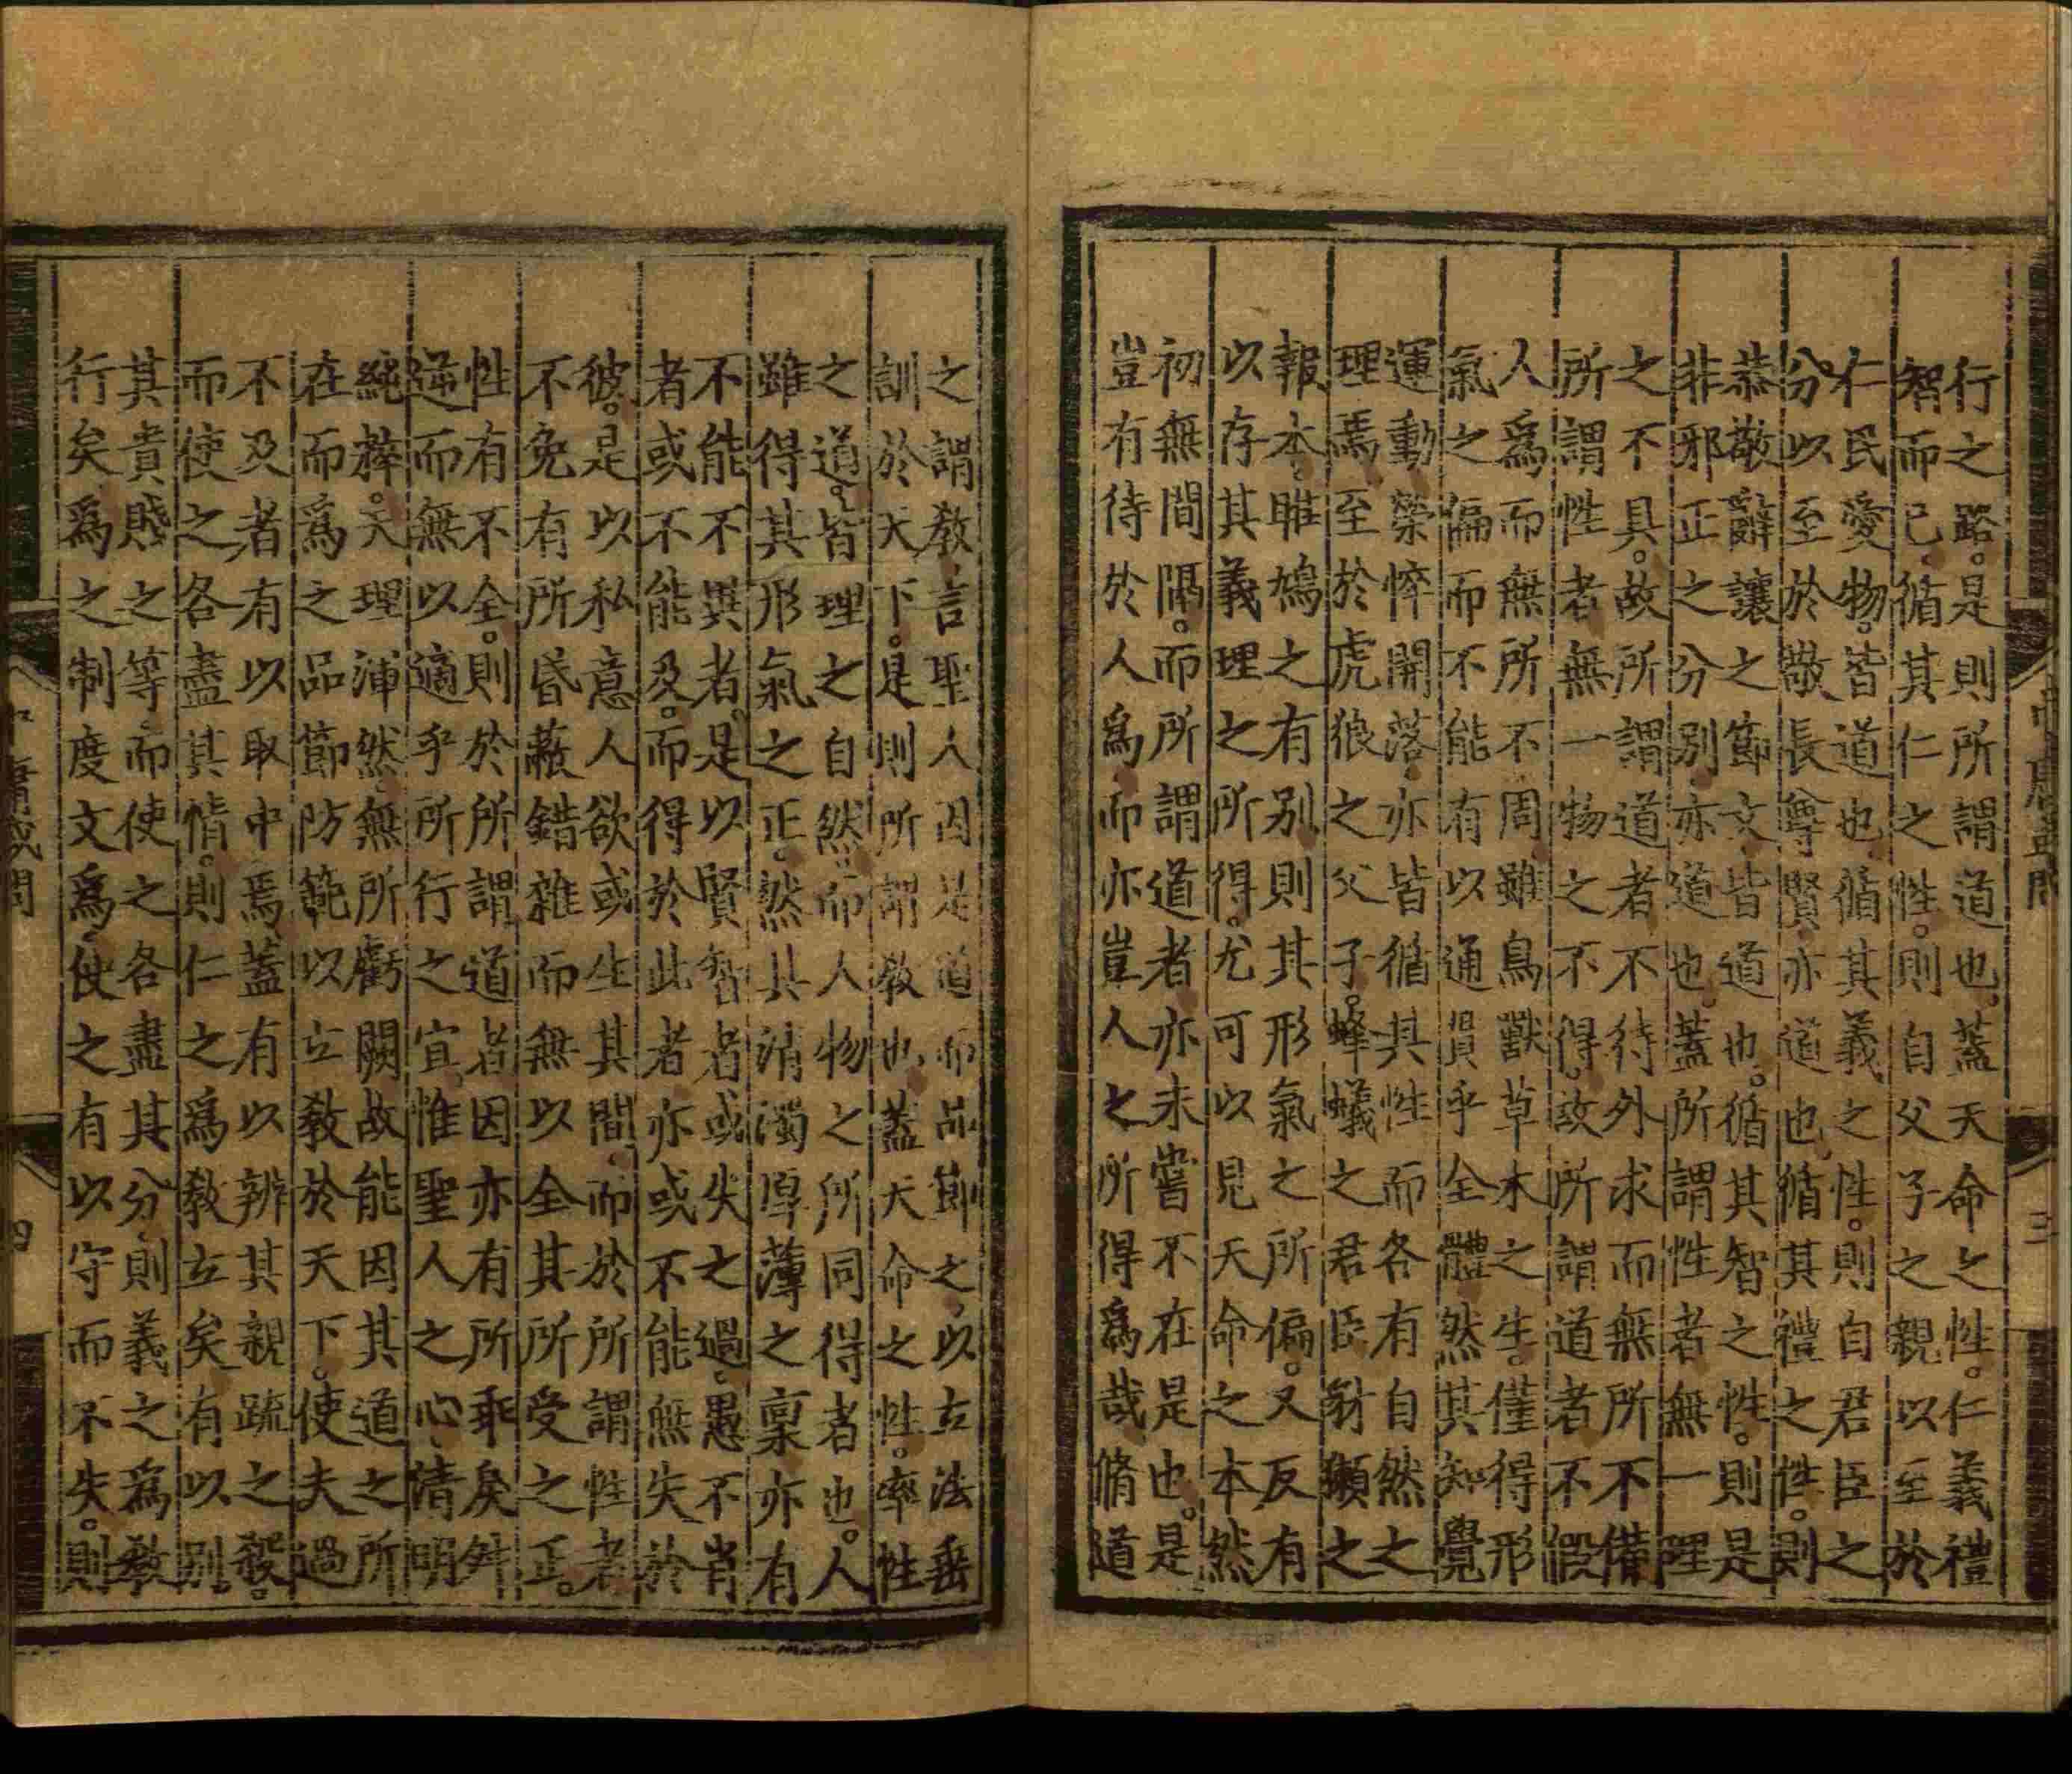 行之路。是則所謂道也。蓋天命之性。仁義禮
智而已。循其仁之性。則自父子之親以至於
仁民愛物。皆道也。循其義之性。則自君臣之
分。以至於敬長尊賢。亦道也。循其禮之性。則
恭敬辭讓之節文。皆道也。循其智之性。則是
非邪正之分別。亦道也。蓋所謂性者無一理
之不具。故所謂道者不待外求而無所不備
所謂性者無一物之不得。故所謂道者不假
人為而無所不周。雖鳥獸草木之生。僅得形
氣之偏而不能有以通貫乎全體。然其知覺
運動榮悴開落。亦皆循其性而各有自然之
理焉。至於虎狼之父子。蜂蟻之君臣。豺獺之
報本。雎鳩之有別。則其形氣之所偏。又反有
以存其義理之所得。尤可以見天命之本然
初無間隔。而所謂道者亦未嘗不在是也。是
豈有待於人爲而亦豈人之所得爲哉。脩道
之謂教。言聖人因是道而品節之。以立法垂
訓於天下。是則所謂教也。蓋天命之性。率性
之道。皆理之自然。而人物之所同得者也。人
雖得其形氣之正。然其清濁厚薄之稟亦有
不能不異者。是以賢智者或失之過。愚不肖
者或不能不及。而得於此者亦或不能無失於
彼。是以私意人欲或生其間。而於所謂性者
不免有所昏蔽錯雜而無以全其所受之正。
性有不全。則於所謂道者因亦有所乖戾舛
逆而無以適乎所行之宜。惟聖人之心。清明
純粹。天理渾然。無所虧闕。故能因其道之所
在而爲之品節防範以立教於天下。使夫過
不及者有以取中焉。蓋有以辨其親疏之殺。
而使之各盡其情。則仁之爲教立矣。有以別
其貴賤之等。而使之各盡其分。則義之爲教
行矣。爲之制度文爲。使之有以守而不失。則
中庸或問
三
中庸或問
四